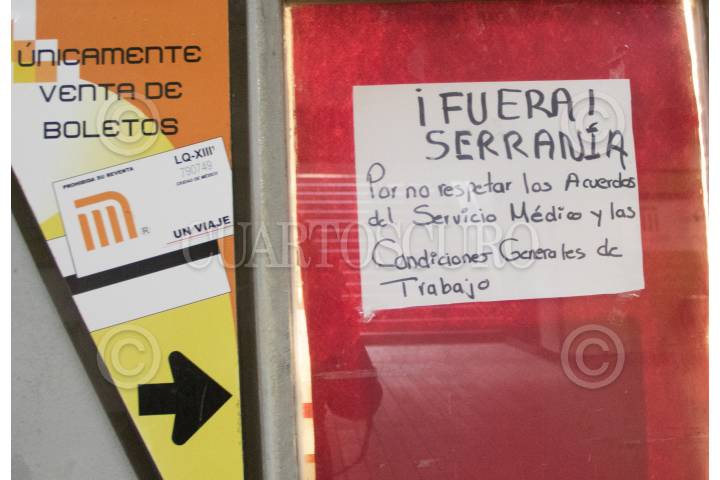 ÚNICAMENTE
VENTA DE
BOLETOS
PROHIBIDA SU REVENTA
LQ-XIII'
790749
CIUDAD DE MÉXICO
UN VIAJE
¡FUERA!
SERRANÍA
Por no respetar los Acuerdos
del Servicio Médico y las
Condiciones Generales de
Trabajo
CUARTOSCURO